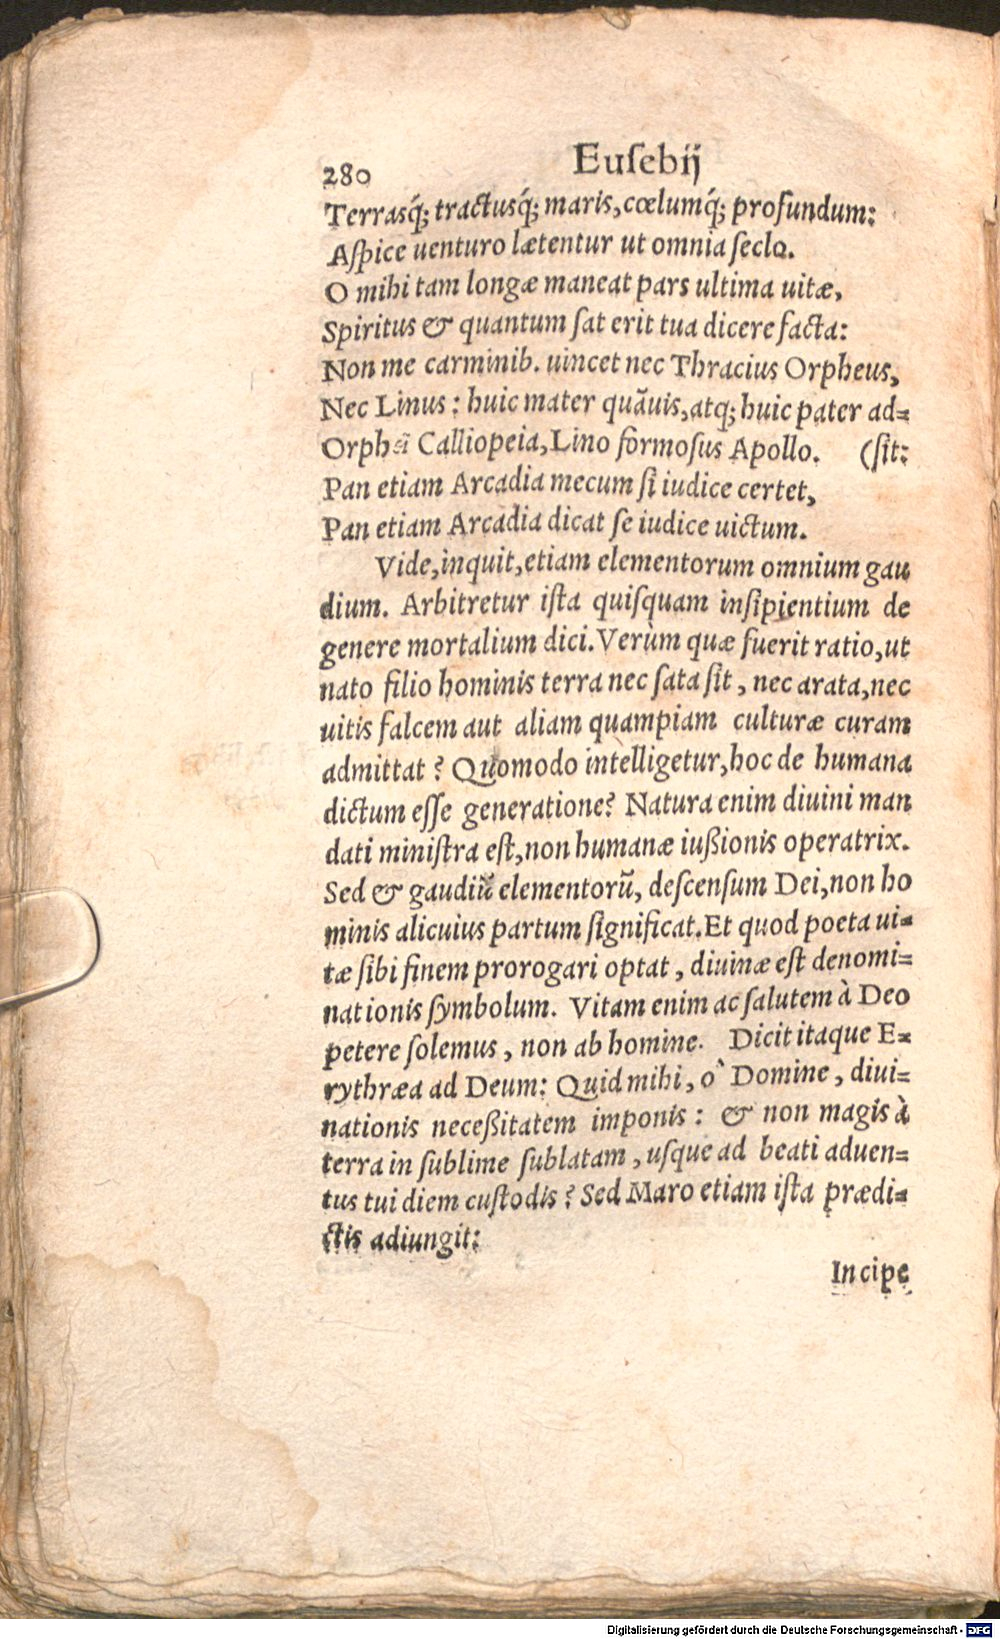 280 Euſebij
Terrasq́; tractusq́; maris, cœlumq́; profundum:
Aſpice uenturo lætentur ut omnia ſeclo.
O mihi tam longæ maneat pars ultima uitæ,
Spiritus & quantum ſat erit tua dicere facta:
Non me carminib. uincet nec Thracius Orpheus,
Nec Linus: huic mater quãuis, atq; huic pater ad=
Orphei Calliopeia, Lino formoſus Apollo. (ſit:
Pan etiam Arcadia mecum ſi iudice certet,
Pan etiam Arcadia dicat ſe iudice uictum.
Vide, inquit, etiam elementorum omnium gau
dium. Arbitretur iſta quiſquam inſipientium de
genere mortalium dici. Verùm quæ fuerit ratio, ut
nato filio hominis terra nec ſata ſit, nec arata, nec
uitis falcem aut aliam quampiam culturæ curam
admittat? Quomodo intelligetur, hoc de humana
dictum eſſe generatione? Natura enim diuini man
dati miniſtra eſt, non humanæ iußionis operatrix.
Sed & gaudiũ elementorũ, deſcenſum Dei, non ho
minis alicuius partum ſignificat. Et quod poeta ui=
tæ ſibi finem prorogari optat, diuinæ eſt denomi=
nationis ſymbolum. Vitam enim ac ſalutem à Deo
petere ſolemus, non ab homine. Dicit itaque E=
rythræa ad Deum: Quid mihi, ò Domine, diui=
nationis neceßitatem imponis: & non magis à
terra in ſublime ſublatam, uſque ad beati aduen=
tus tui diem cuſtodis? Sed Maro etiam iſta prædi=
ctis adiungit:
Incipe
Digitalisierung gefördert durch die Deutsche Forschungsgemeinschaft - DFG